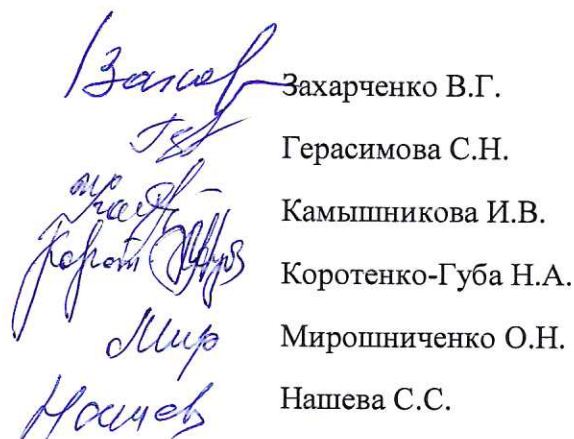 Захарченко В.Г.
Герасимова С.Н.
Камышникова И.В.
Коротенко-Губа Н.А.
Мир Мирошниченко О.Н.
Нашев Нашева С.С.